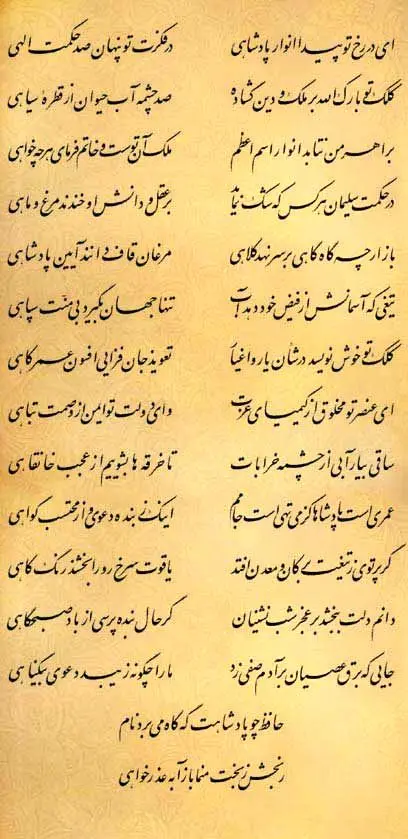 ای در رخ تو پیدا انوار پادشاهی در فکرت تو پنهان صد حکمت الهی
کلک تو بارک الله بر ملک و دین گشاده صد چشمه آب حیوان از قطرهٔ سیاهی
بر اهرمن نتابد انوار اسم اعظم ملک آن توست و خاتم فرمای هر چه خواهی
در حکمت سلیمان هر کس که شک نماید بر عقل و دانش او خندند مرغ و ماهی
باز ار چه گاه گاهی بر سر نهد کلاهی مرغان قاف دانند آیین پادشاهی
تیغی که آسمانش از فیض خود دهد آب تنها جهان بگیرد بی منت سپاهی
کلک تو خوش نویسد در شأن یار و اغیار تعویذ جان فزایی افسون عمر کاهی
ای عنصر تو مخلوق از کیمیای عزت و ای دولت تو ایمن از وصمت تباهی
ساقی بیار آبی از چشمه خرابات تا خرقه ها بشوییم از عجب خانقاهی
عمری است پادشاها کز می تهی است جامم اینک ز بنده دعوی و از محتسب گواهی
گر پرتوی ز تیغت بر کان و معدن افتد یاقوت سرخ رو را بخشند رنگ کاهی
دانم دلت ببخشد بر عجز شب نشینان گر حال بنده پرسی از باد صبحگاهی
جایی که برق عصیان بر آدم صفی زد ما را چگونه زیبد دعوی بیگناهی
حافظ چو پادشاهت گه گاه می برد نام
رنجش ز بخت منما بازآ به عذرخواهی